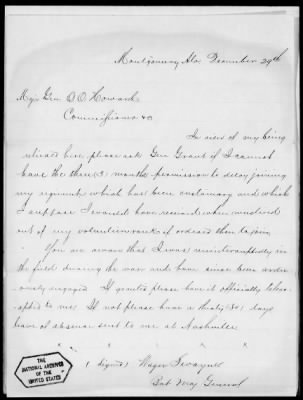 Montgomery Ala December 29th
Maj Gen O O Howard
Commissioner &c
In view of my being
relieved here please ask Gen Grant if I cannot
have the three (3) months permission to delay joining
my regiment which has been customary and which
I suppose I would have received when mustered
out of my volunteer rank if ordered then to join
You are aware that I was uninterruptedly in
the field during the war and have since been
ously engaged If granted please have it officially telegr
aphed to me If not please have a thirty (30) days
leave of absence sent to me at Nashville
x x x x
(Signed) Wager Swayne
Bvt Maj General
THE
NATIONAL ARCHIVES
OF THE
UNITED STATES